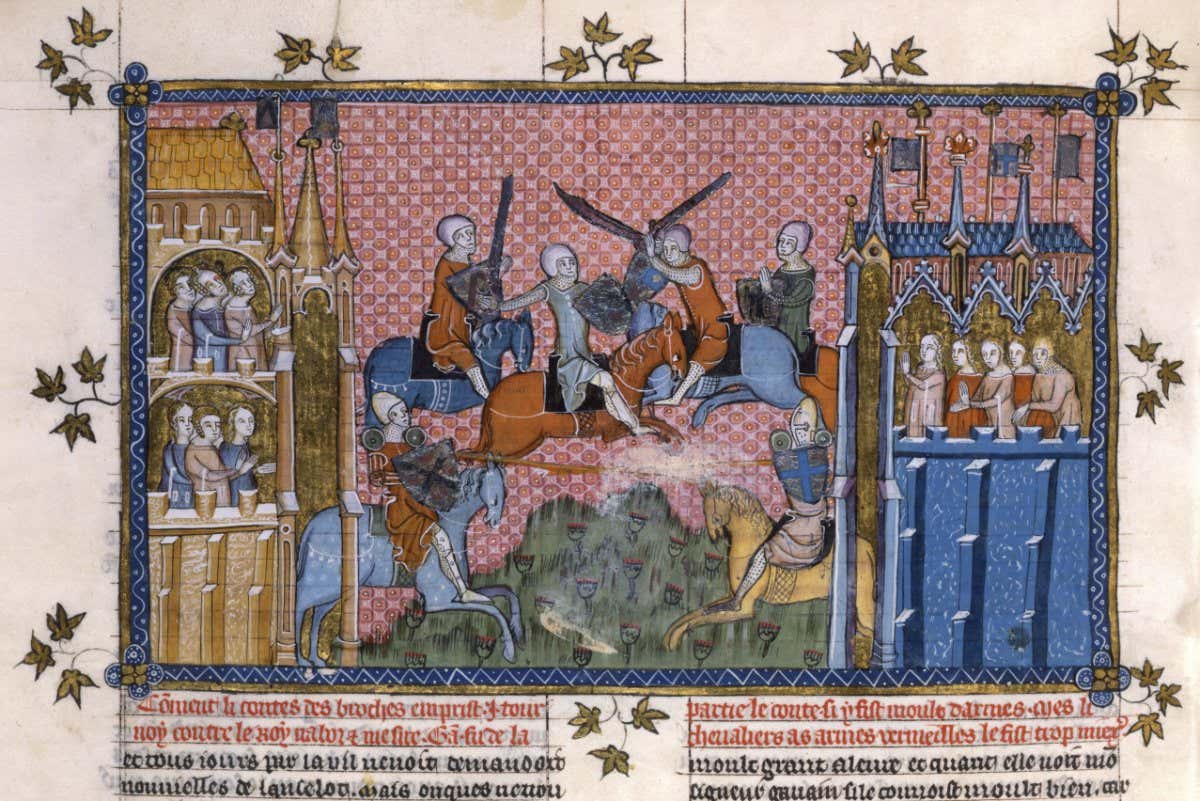 Cõment li contes des broches emprist .i. tour
noy contre le roy nabor & mesire .Gã. fu de la
et tous iours par la u il uenoit demandoit
nouuelles de lancelot. mais onques ne trou
partie le conte. si y fist moult darmes. mes li
cheualiers as armes uermeilles le fist trop miex
moult grant aleure et quant elle uoit mõ
seigneur gauain si le connoist moult bien. car